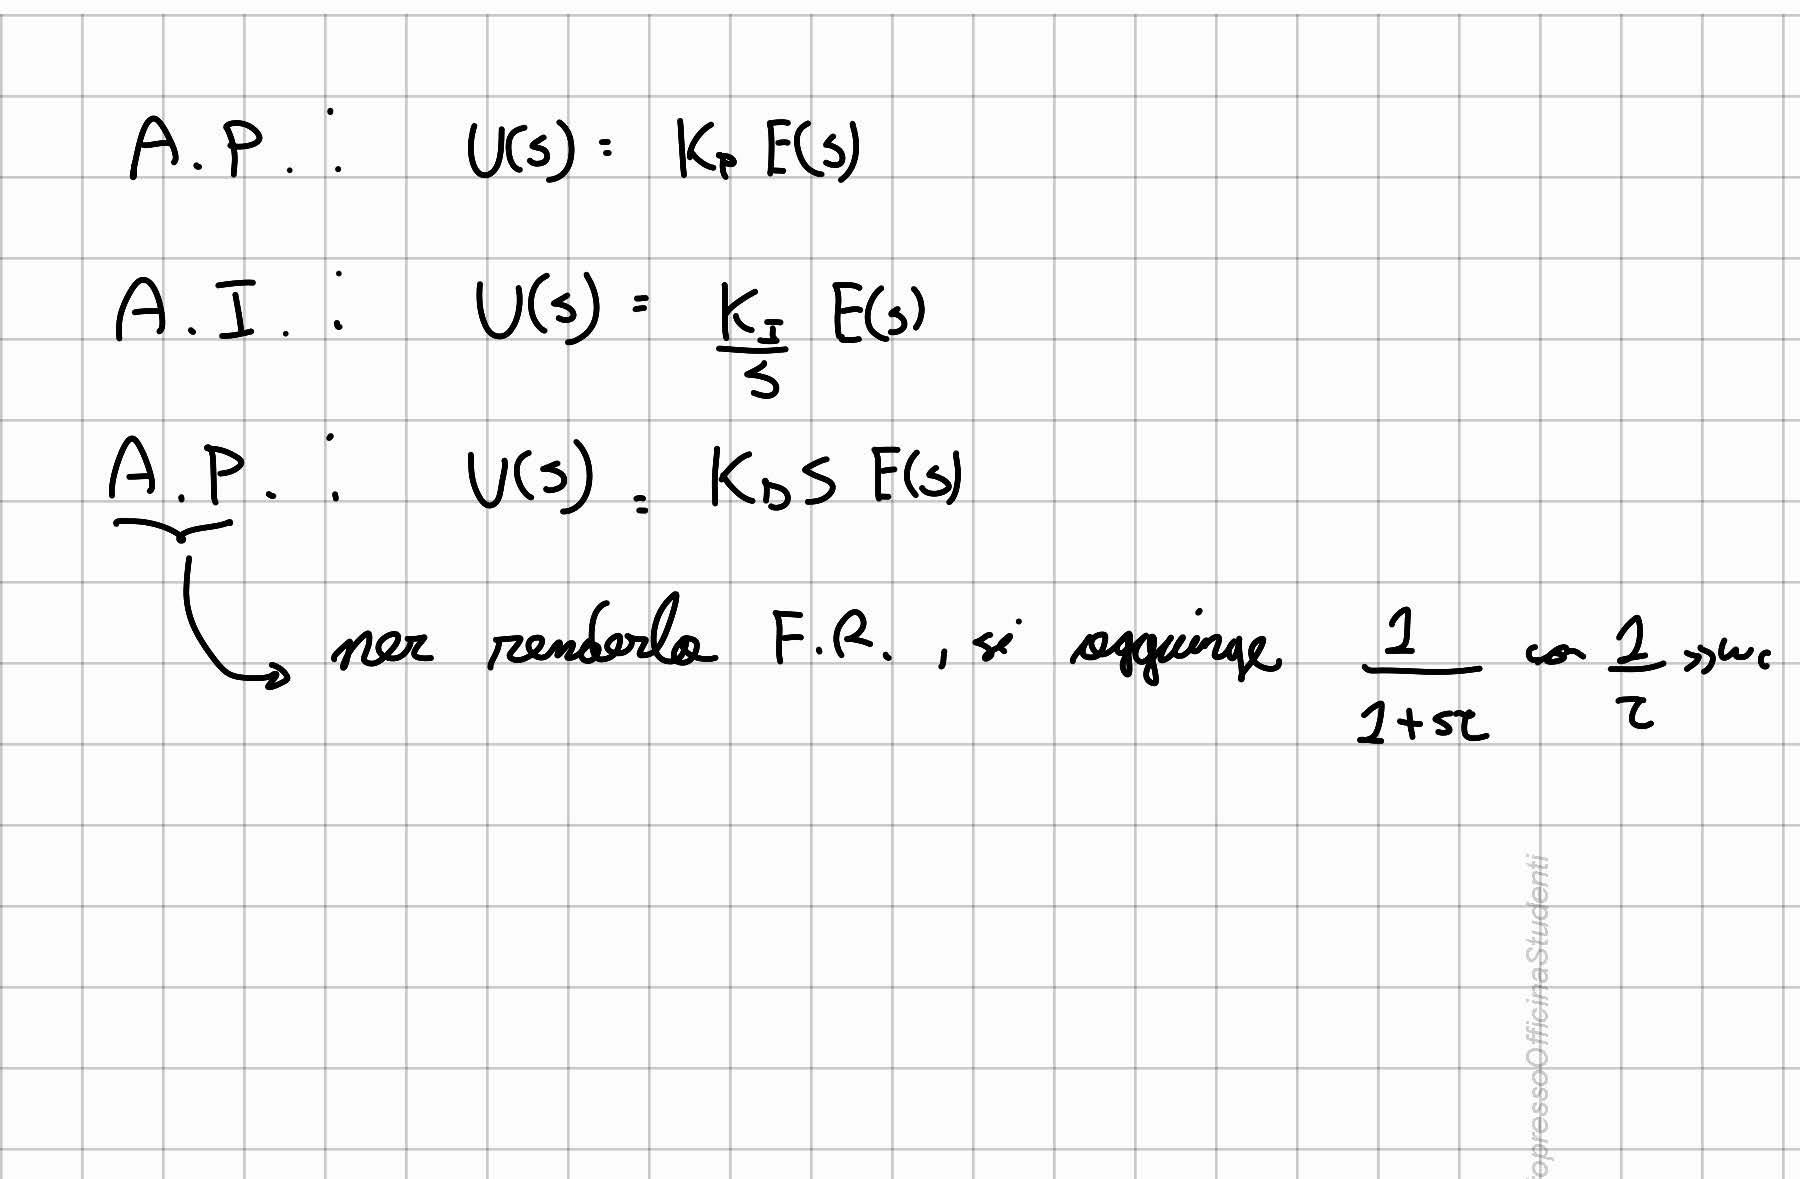 A.P. : U(s) = K_P E(s)
A.I. : U(s) = K_I/s E(s)
A.P. : U(s) = K_D s E(s)
per renderlo F.R., si aggiunge 1/(1+sτ) con 1/τ >> ωc
opressoOfficinaStudenti